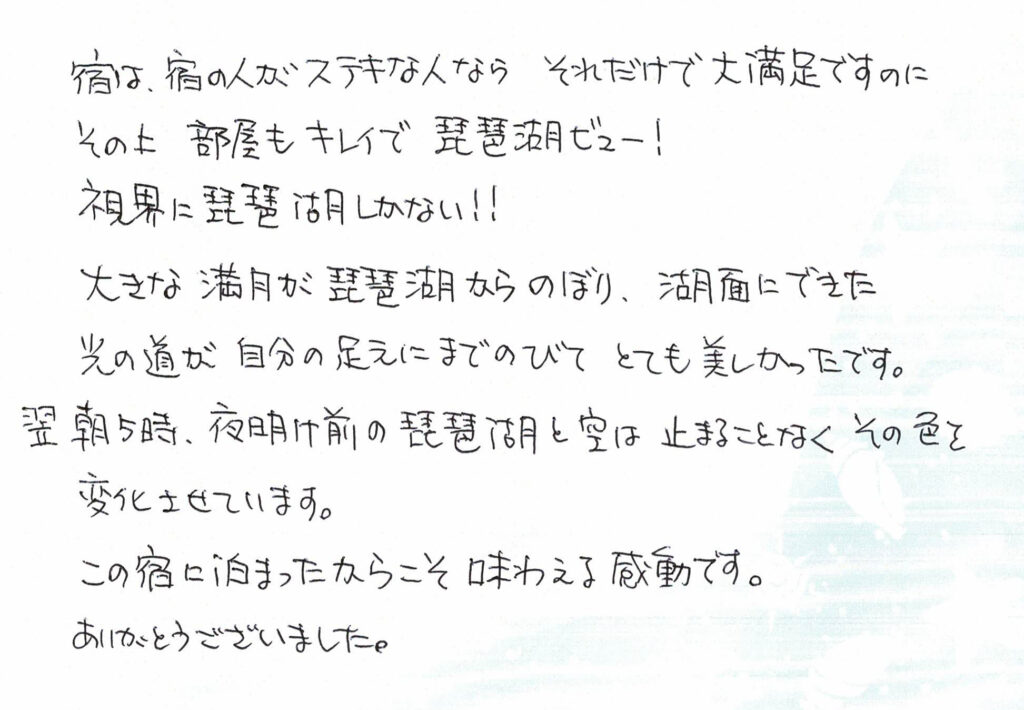 宿は、宿の人がステキな人なら それだけで大満足ですのに
その上 部屋もキレイで 琵琶湖ビュー!
視界に琵琶湖しかない!!
大きな満月が琵琶湖からのぼり、湖面にできた
光の道が 自分の足元にまでのびて とても美しかったです。
翌朝5時、夜明け前の琵琶湖と空は 止まることなく その色を
変化させています。
この宿に泊まったからこそ 味わえる感動です。
ありがとうございました。